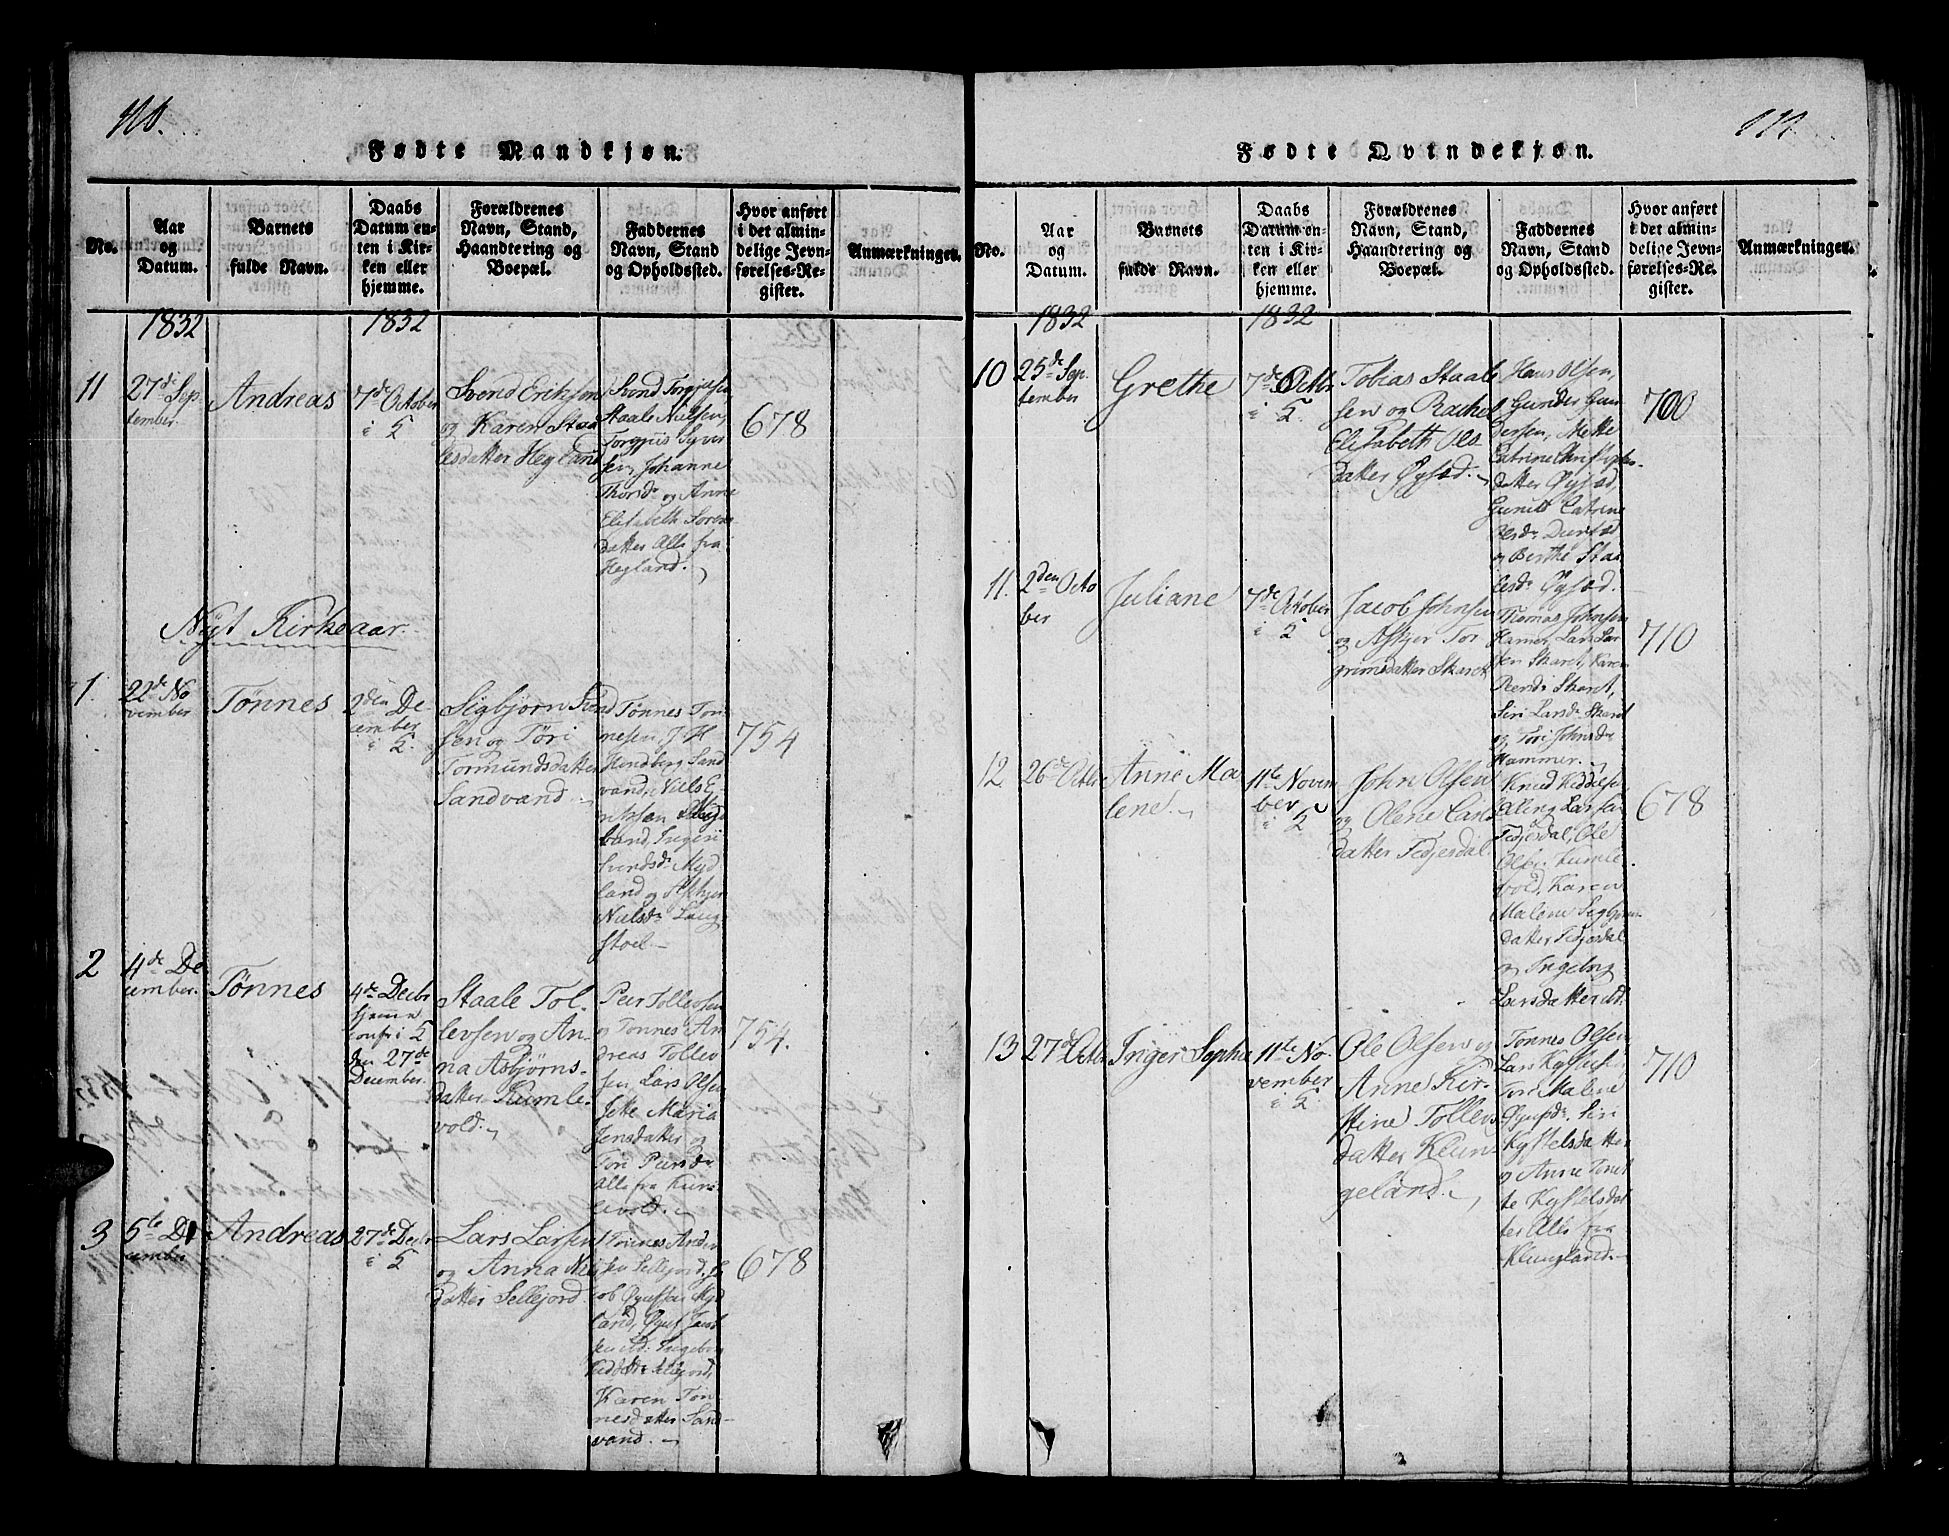 Fødte Mandkjøn.
No.
Aar
og
Datum.
Barnets
fulde Navn.
Daabs
Datum en-
ten i Kir-
ken eller
hjemme.
Forældrenes
Navn, Stand,
Haandtering og
Boepæl.
Faddernes
Navn, Stand
og Opholdssted.
Hvor anført
i det almin-
delige Jevn-
førelses-Re-
gister.
Anmærkninger.
1832
1832
11
27de Sep
tember.
Andreas
7de October
i K
Svend Eriksen
og Karen Staa
lesdatter Hegland
Svend Torgiusen
Staale Nielsen,
Torgius Syver
sen, Johanne
Thorsdr og Anne
Elisabeth Soren
datter Alle fra
Hegland.
678
Nyt Kirkeaar.
1.
22de No
vember
Tønnes
2den De
cember
i K.
Sigbjørn Svend
sen og Tøri
Tormundsdatter
Sandvand
Tønnes Ton
nesen
Sand
vand, Niels E
Ingeri
Svendsdr Myd
land og Askjer
Nielsdr Laug
stoel
754
2
4de De
cember.
Tønnes
4de Decbr
hjeme
conf: i K
den 27de
December.
Staale Tol
levsen og An
na Asbjørns
datter Kumle
vold.
Peer Tollevsen
og Tonnes An
dreas Tollev
sen, Lars Olsen
Maria
Jensdatter og
Tori Peersdr
Alle fra Kum
levold.
754.
3
5te De
cember
Andreas
27de Decbr
i K
Lars Larsen
og Anna Niels
datter Sellejord.
Tonnes Ander
sen Sellejord, Ja
cob Ougsten Myd
land,
sen ibd. Ingeborg
Karen Ton
nesdatter Sand
vand.
678
Fødte Qvindekjøn.
No.
Aar
og
Datum.
Barnets
fulde Navn.
Daabs
Datum en-
ten i Kir-
ken eller
hjemme.
Forældrenes
Navn, Stand,
Haandtering og
Boepæl.
Faddernes
Navn, Stand
og Opholdssted.
Hvor anført
i det almin-
delige Jevn-
førelses-Re-
gister.
Anmærkninger.
1832
1832
10
25de Sep
tember
Grethe
7de Octbr
i K.
Tobias Staale
sen og Rachel
Elisabeth Ols
datter Øysæd.
Hans Olsen,
Gunder Gun
dersen, Mette
Catrine Christophers
datter Øysæd,
Catrine
og Berthe Staa
lesdr Øysæd.
700
11.
2den Octo
ber
Juliane
7de October
i K
Jacob Johnsen
og Askjer Tor
grimsdatter Skaret
Thomas Johnsen
Hamer, Lars Lar
sen Skaret, Karen
Skaret,
Siri Larsdr Skaret
og Tori Johnsdr
Hammer.
710
12.
26de Octbr
Anne Ma
lene.
11te Novem
ber
i K
John Olsen
og Olene Lars
datter Fedjesdal.
Knud Keddelsen,
Elling Larsen
Fedjesdal, Ole
Olsen Kumle
vold, Karen
Malene Sigbjørns
datter Fedjesdal
og Ingeborg
Larsdatter ibd.
678
13
27de Octbr
Inger Sophie
11te No-
vember
i K.
Ole Olsen og
Anne Kir-
stine Tollevs
datter Kleun-
geland.
Tonnes Olsen,
Lars
Tori Malene
Siri
Kystelsdatter
og Anne Tonet
te Kystelsdat
ter Alle fra
Klungland.
710